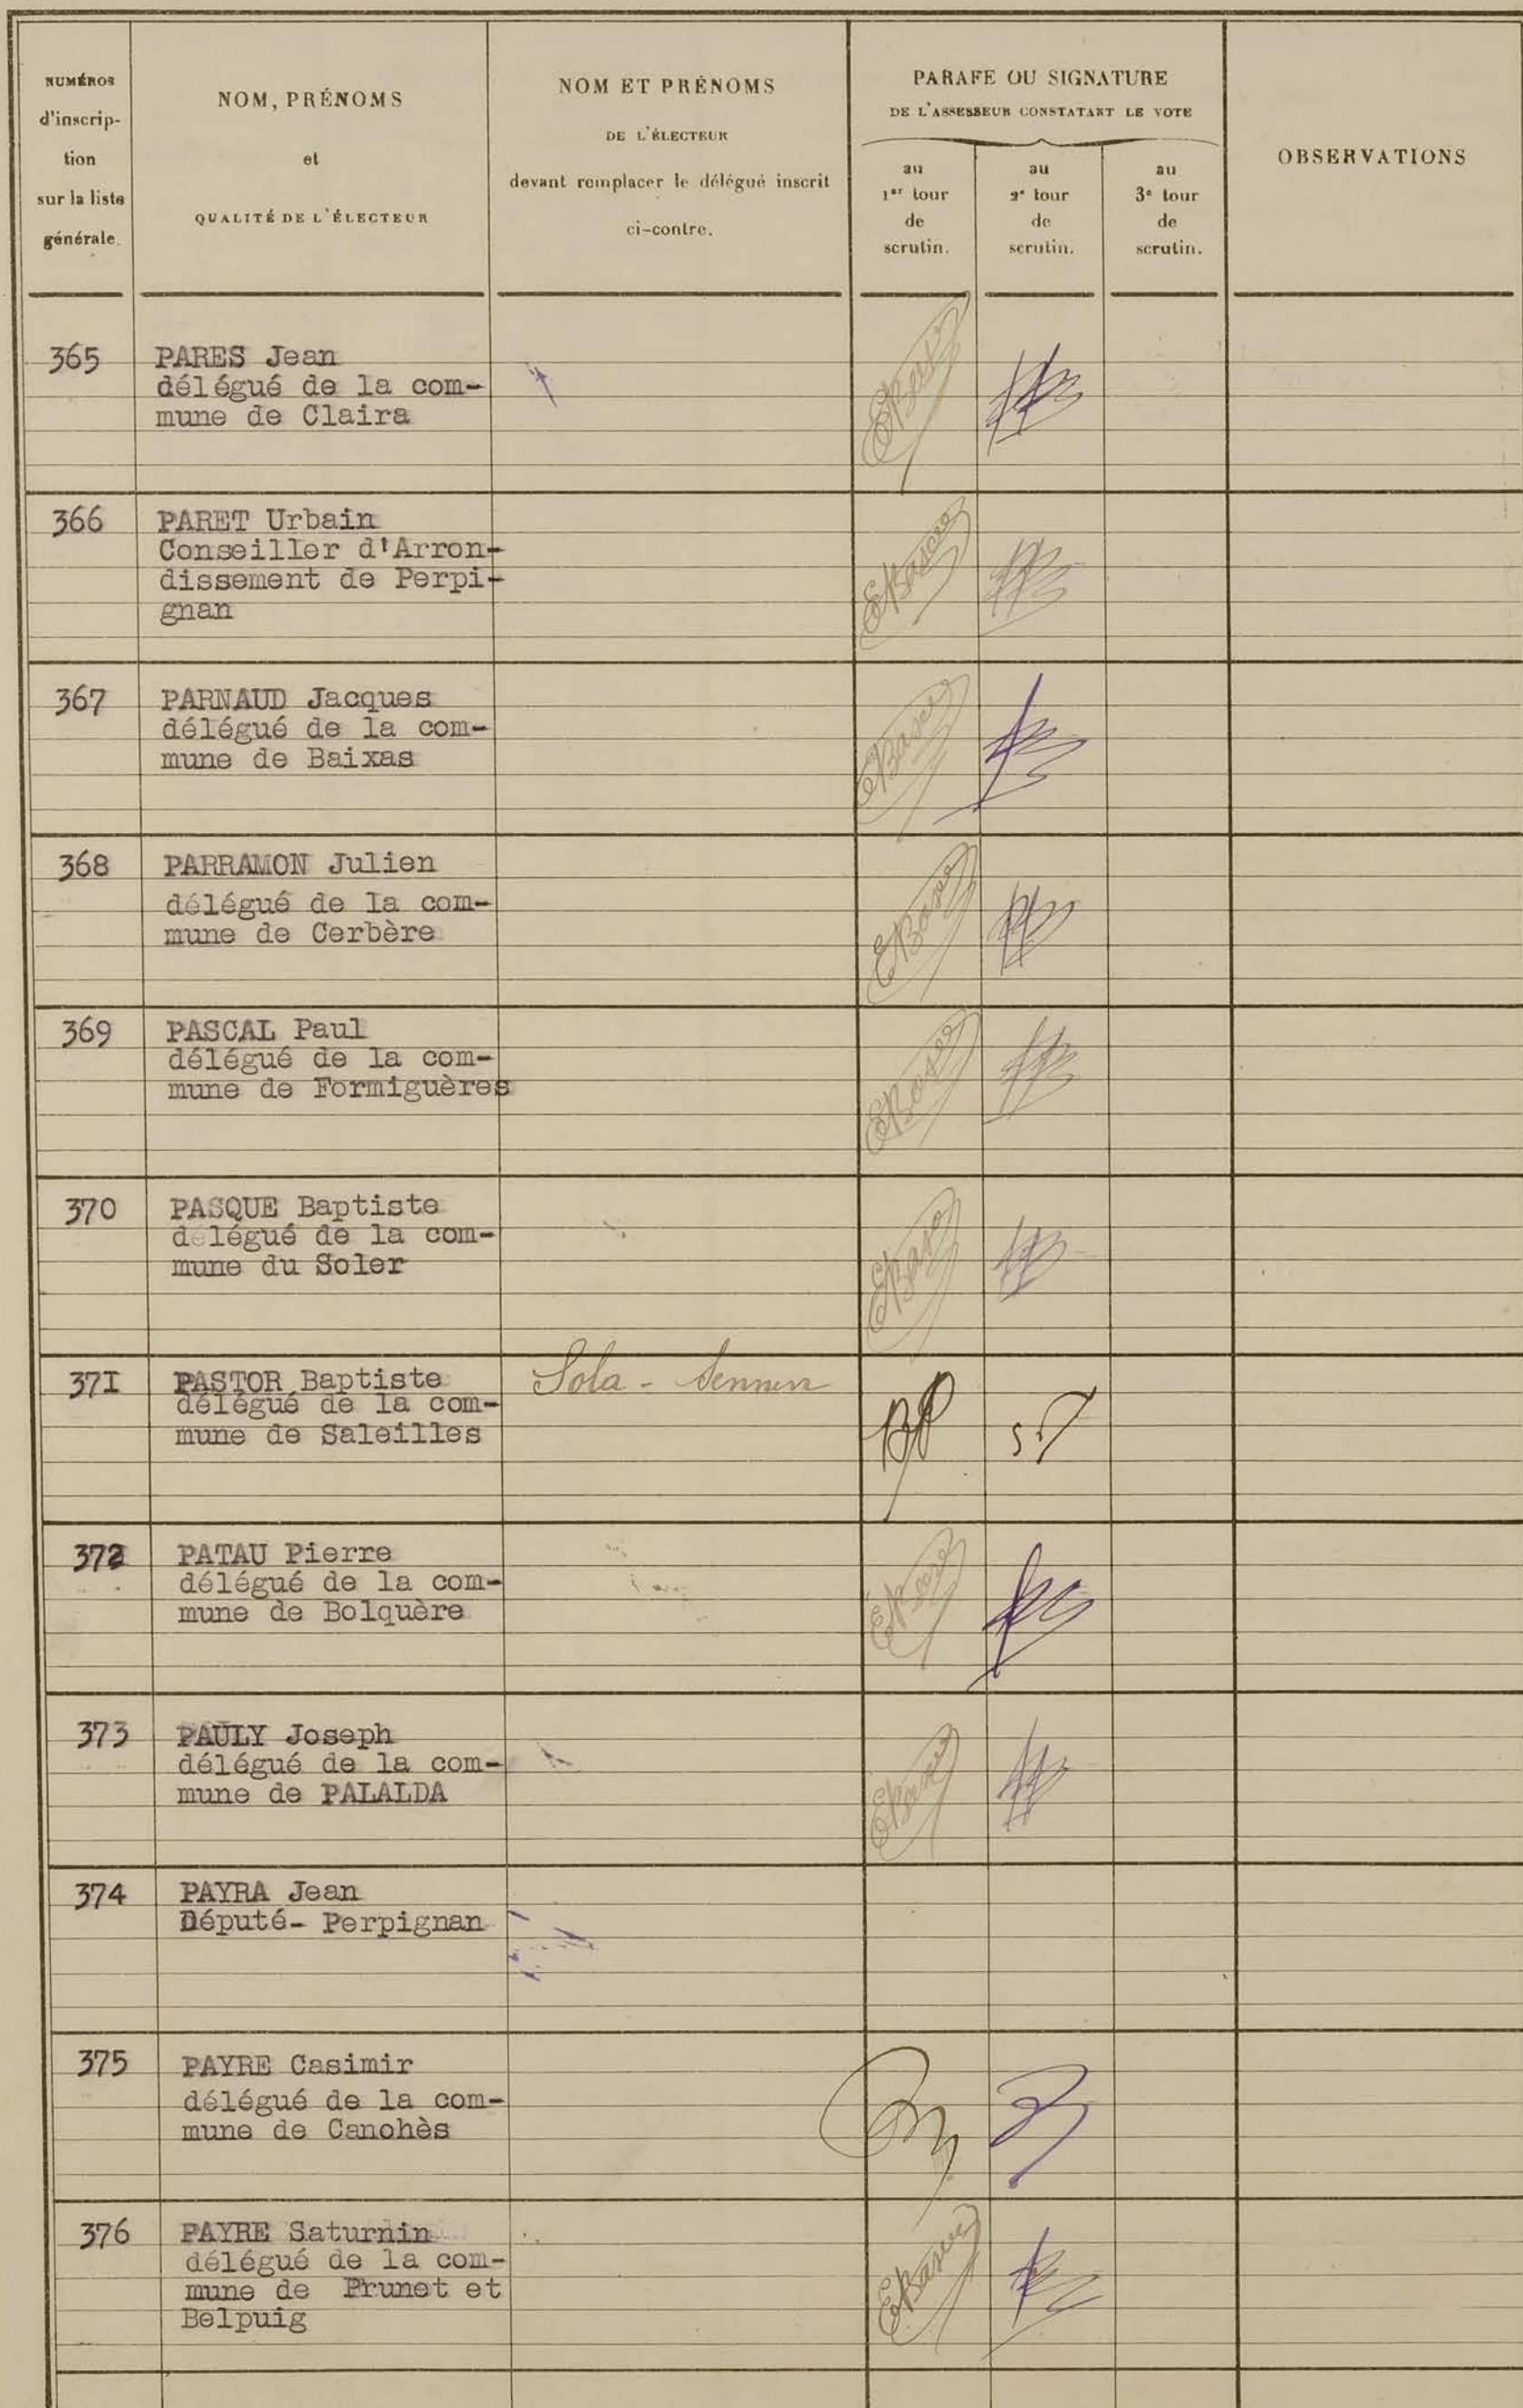 NUMÉROS
d'inscrip-
tion
sur la liste
générale.
NOM, PRÉNOMS
et
QUALITÉ DE L'ÉLECTEUR
NOM ET PRÉNOMS
DE L'ÉLECTEUR
devant remplacer le délégué inscrit
ci-contre.
PARAFE OU SIGNATURE
DE L'ASSESSEUR CONSTATANT LE VOTE
au
1er tour
de
scrutin.
au
2e tour
de
scrutin.
au
3e tour
de
scrutin.
OBSERVATIONS
365 PARES Jean
délégué de la com-
mune de Claira
366 PARET Urbain
Conseiller d'Arron-
dissement de Perpi-
gnan
367 PARNAUD Jacques
délégué de la com-
mune de Baixas
368 PARRAMON Julien
délégué de la com-
mune de Cerbère
369 PASCAL Paul
délégué de la com-
mune de Formiguères
370 PASQUE Baptiste
délégué de la com-
mune du Soler
371 PASTOR Baptiste Sola - Sennen
délégué de la com-
mune de Saleilles
BP
372 PATAU Pierre
délégué de la com-
mune de Bolquère
373 PAULY Joseph
délégué de la com-
mune de PALALDA
374 PAYRA Jean
Député- Perpignan
375 PAYRE Casimir
délégué de la com-
mune de Canohès
376 PAYRE Saturnin
délégué de la com-
mune de Prunet et
Belpuig